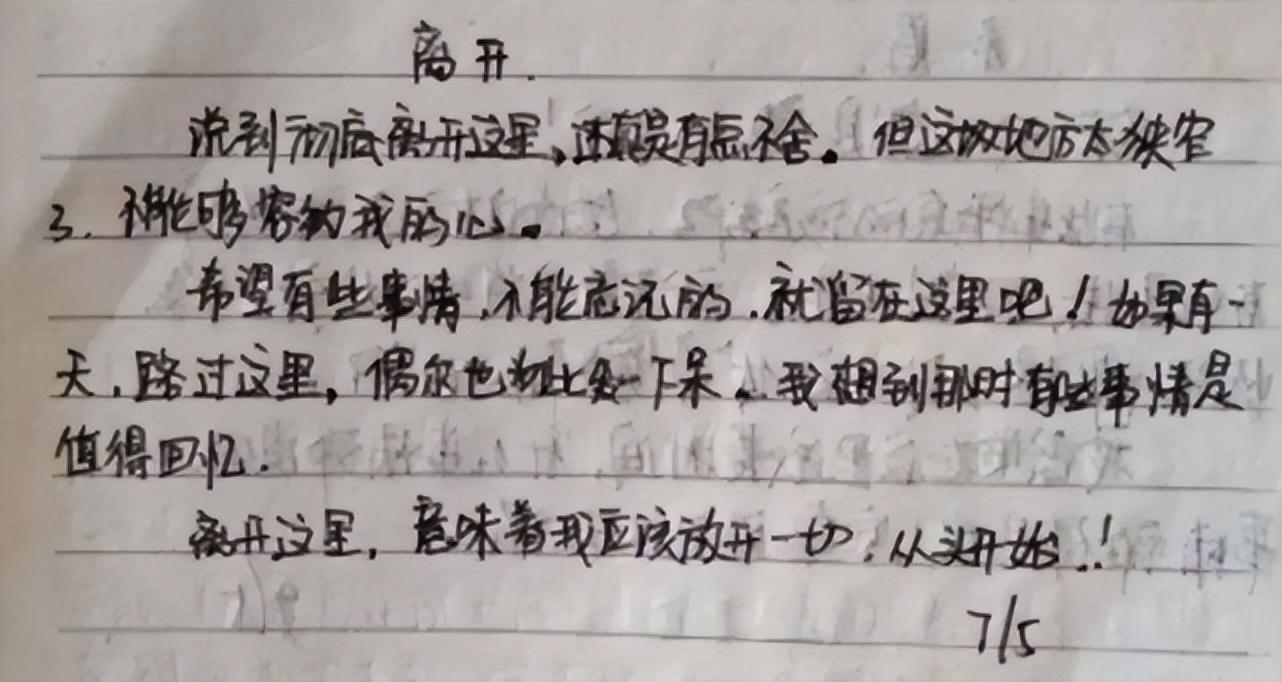 离开.
说到彻底离开这里,还真是有点不舍。但这块地方太狭窄
了.不能够容纳我的心。
希望有些事情,不能忘记的,就留在这里吧!如果有一
天,路过这里,偶尔也在此发一下呆。我想到那时有些事情是
值得回忆.
离开这里,意味着我应该放开一切,从头开始..!
7/5